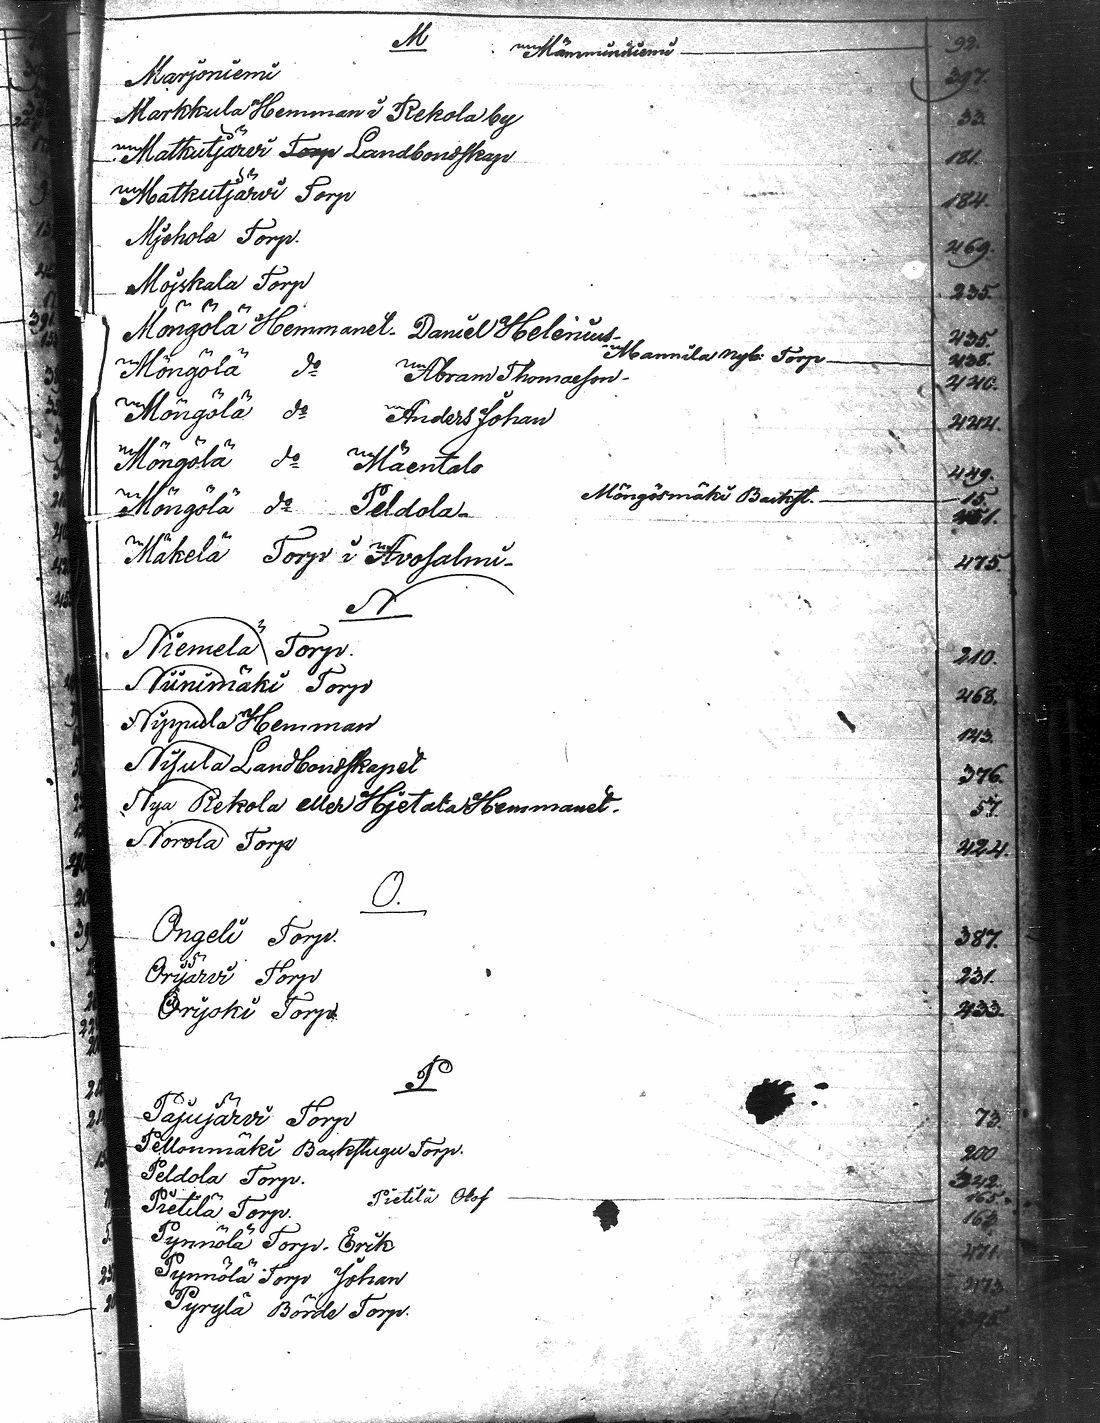 M
Mämminniemi 92.
Marjoniemi 397.
Markkula Hemman i Rekola by 33.
Matkutjärvi Torp Landbondskap 181.
Matkutjärvi Torp 184.
Mjehola Torp. 269.
Mojskala Torp 235.
Möngölä Hemmanet. Daniel Helenius 435.
Mannila nyb. Torp 438.
Möngölä do Abram Thomaesson 440.
Möngölä do Anders Johan 444.
Möngölä do Mäentalo 449.
Möngösmäki Backst. 15.
Möngölä do Peldola 451.
Mäkelä Torp i Avosalmi 475.
N
Niemelä Torp. 210.
Niinimäki Torp 268.
Nippula Hemman 143.
Nisula Landbondskapet 376.
Nya Rekola eller Hjetala Hemmanet. 57.
Norola Torp 424.
O.
Ongeli Torp. 387.
Orijärvi Torp 231.
Orijoki Torp 433.
P
Pajujärvi Torp 73.
Pellonmäki Backstugu Torp. 200
Peldola Torp. 242.
Pietilä Olof 165.
Pietilä Torp. 163.
Pynnölä Torp. Erik 471.
Pynnölä Torp Johan 473
Pyrylä Börde Torp. 395.